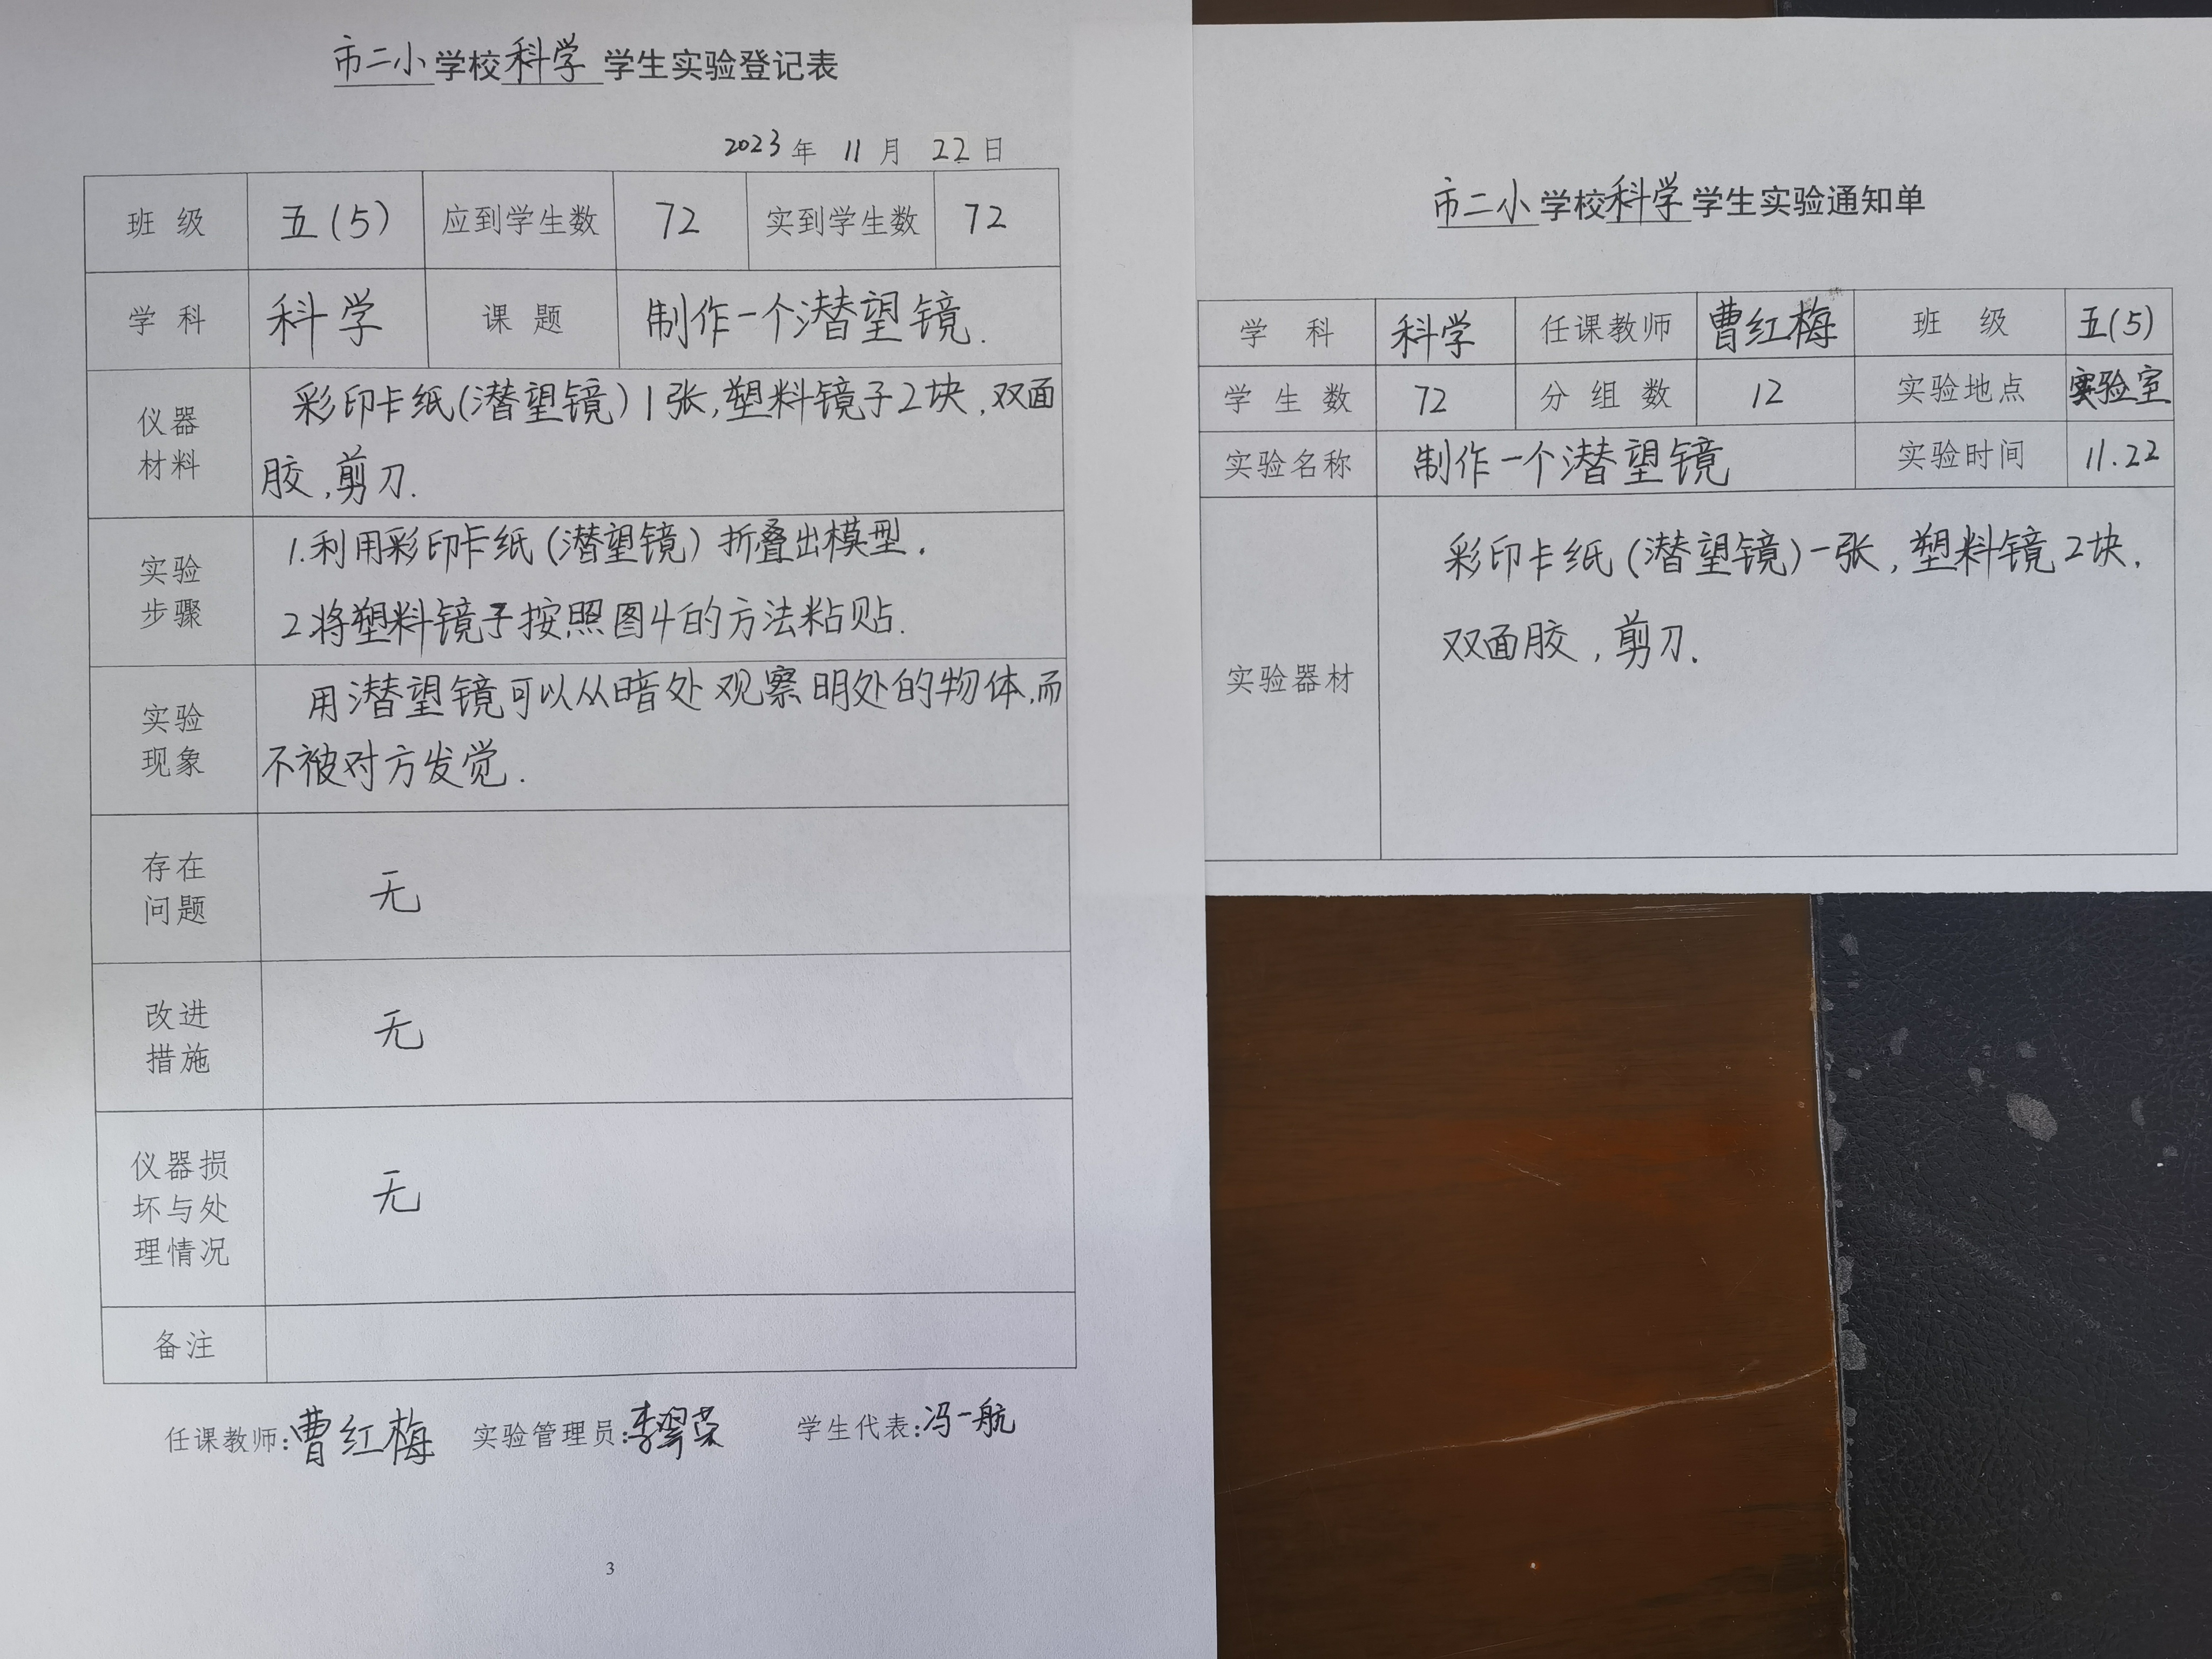 市二小学校科学 学生实验登记表
2023年 11月 22日
班级 五(5) 应到学生数 72 实到学生数 72
学科 科学 课题 制作一个潜望镜.
仪器材料 彩印卡纸(潜望镜)1张,塑料镜子2块,双面
胶,剪刀.
实验步骤 1.利用彩印卡纸(潜望镜)折叠出模型.
2.将塑料镜子按照图4的方法粘贴.
实验现象 用潜望镜可以从暗处观察明处的物体,而
不被对方发觉.
存在问题 无
改进措施 无
仪器损坏与处理情况 无
备注
任课教师:曹红梅 实验管理员: 学生代表:冯一航
3
市二小学校科学学生实验通知单
学科 科学 任课教师 曹红梅 班级 五(5)
学生数 72 分组数 12 实验地点 实验室
实验名称 制作一个潜望镜 实验时间 11.22
实验器材 彩印卡纸(潜望镜)一张,塑料镜2块,
双面胶,剪刀.